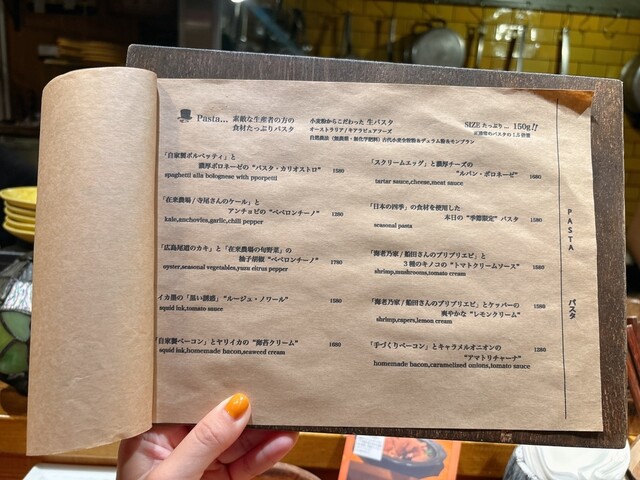 Pasta... 素敵な生産者の方の
食材たっぷりパスタ
小麦粉からこだわった 生パスタ
オーストラリア / キアラピュアフーズ
自然農法 (無農薬・無化学肥料) 古代小麦全粒粉&デュラム粉&モンブラン
SIZE たっぷり... 150g!!
「自家製ポルペッティ」と
濃厚ボロネーゼの "パスタ・カリオストロ" 1580
spaghetti alla bolognese with pporpetti
「在来農場 / 寺尾さんのケール」と
アンチョビの "ペペロンチーノ" 1280
kale,anchovies,garlic,chili pepper
「広島尾道のカキ」と「在来農場の旬野菜」の
柚子胡椒 "ペペロンチーノ" 1780
oyster,seasonal vegetables,yuzu citrus pepper
イカ墨の「黒い誘惑」 "ルージュ・ノワール" 1580
squid ink,tomato sauce
「自家製ベーコン」とヤリイカの "海苔クリーム" 1680
squid ink,homemade bacon,seaweed cream
「スクリームエッグ」と濃厚チーズの
"ルパン・ボロネーゼ" 1680
tartar sauce,cheese,meat sauce
「日本の四季」の食材を使用した
本日の "季節限定" パスタ 1580
seasonal pasta
「海老乃家 / 船田さんのプリプリエビ」と
3種のキノコの "トマトクリームソース" 1580
shrimp,mushrooms,tomato cream
「海老乃家 / 船田さんのプリプリエビ」とケッパーの
爽やかな "レモンクリーム" 1580
shrimp,capers,lemon cream
「手づくりベーコン」とキャラメルオニオンの
"アマトリチャーナ" 1280
homemade bacon,caramelized onions,tomato sauce
PASTA
パスタ